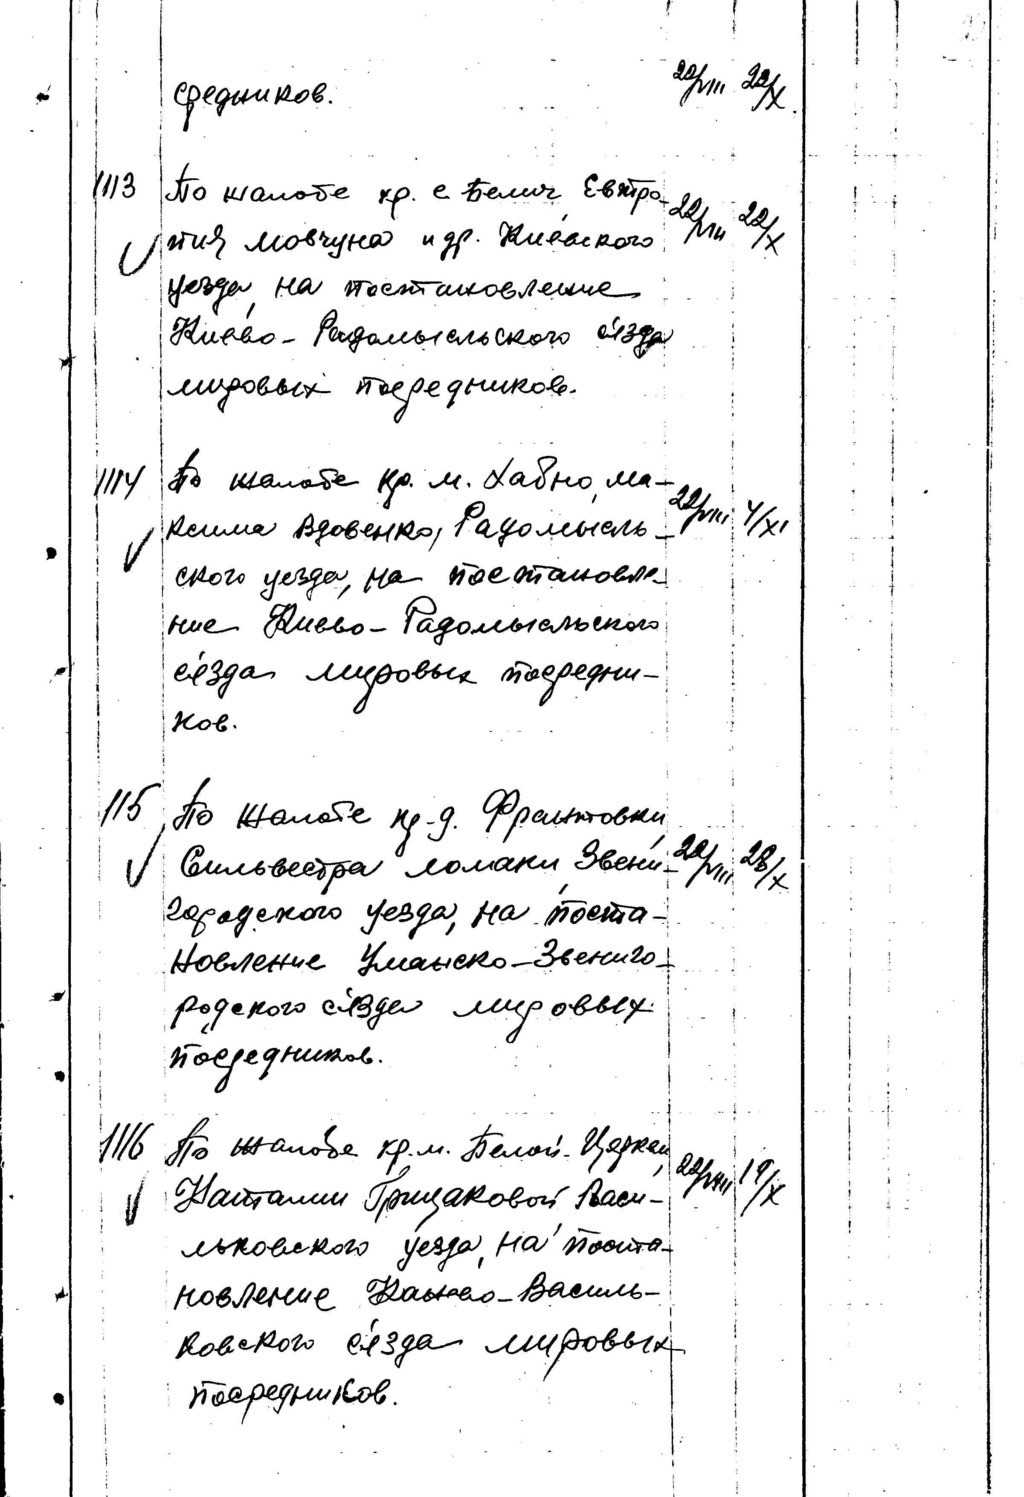 средников. 22/VIII 22/X
1113 По жалобе кр. с. Белич Евтро-
пия Мовчуна и др. Киевского 22/VIII 22/X
уезда, на постановление
Киево-Радомысльского с'езда
мировых посредников.
1114 По жалобе кр. м. Хабно, Ма-
ксима Вдовенко, Радомысль- 22/VIII 4/XI
ского уезда, на постановле-
ние Киево-Радомысльского
с'езда мировых посредни-
ков.
115 По жалобе кр. д. Франковки,
Сильвестра Ломаки, Звени- 22/VIII 28/X
городского уезда, на поста-
новление Уманско-Звениго-
родского с'езда мировых
посредников.
1116 По жалобе кр. м. Белой-Церкви,
Наталии Грицаковой Васи- 22/VIII 19/X
льковского уезда, на поста-
новление Канево-Василь-
ковского с'езда мировых
посредников.